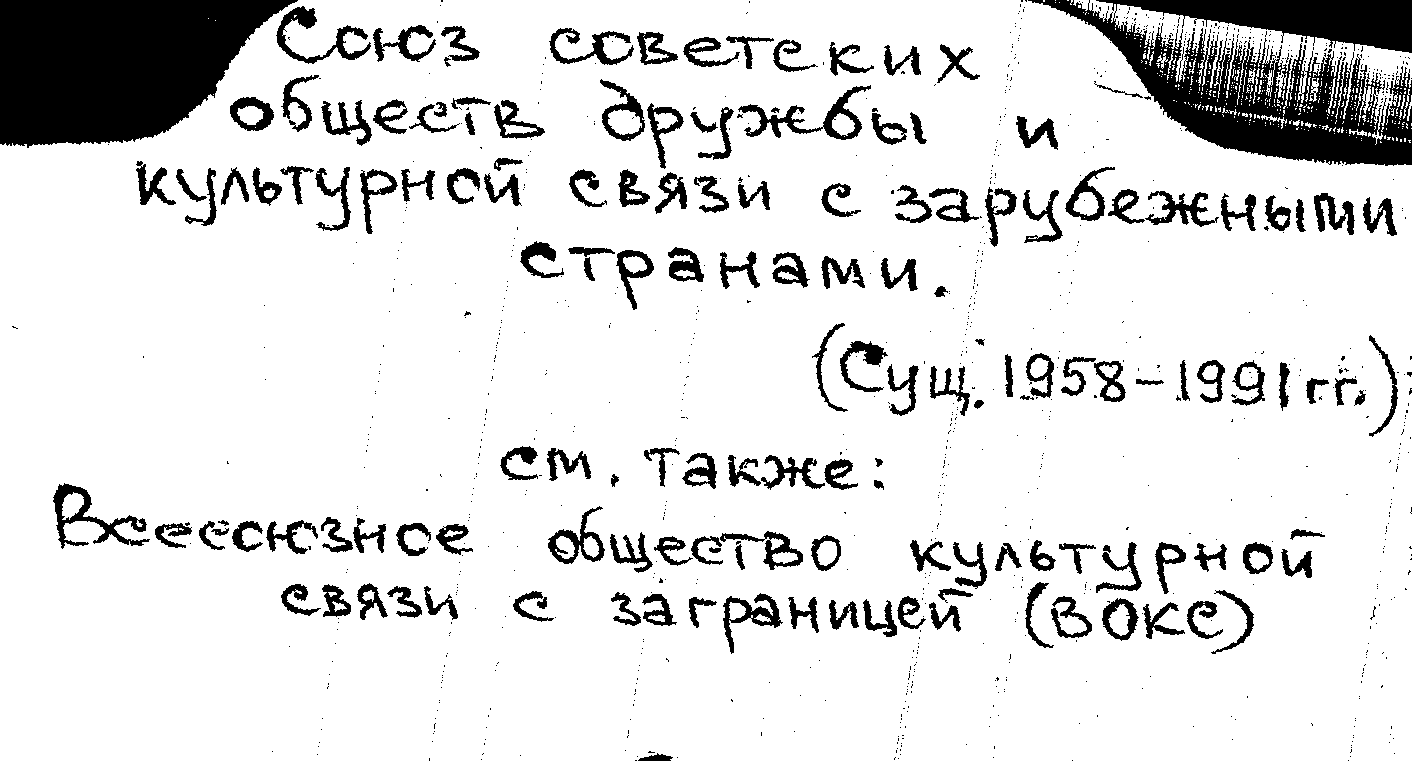 Союз советских
обществ дружбы и
культурной связи с зарубежными
странами.
(Сущ. 1958-1991гг.)
см. также:
Всесоюзное общество культурной
связи с заграницей (ВОКС)